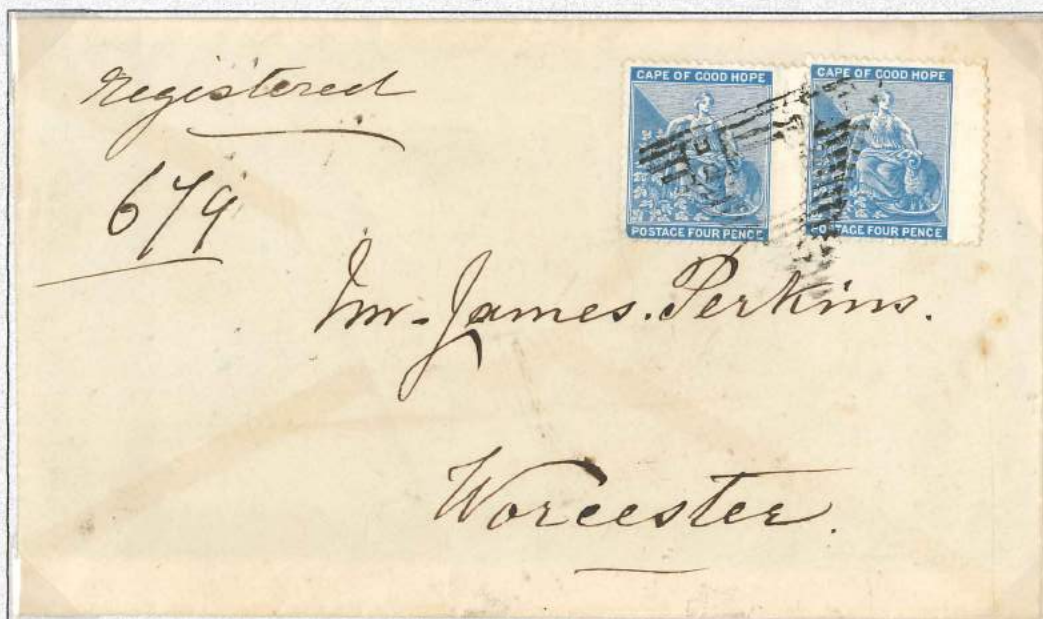 Registered
679
CAPE OF GOOD HOPE
POSTAGE FOUR PENCE
CAPE OF GOOD HOPE
POSTAGE FOUR PENCE
Mr. James. Perkins.
Worcester.